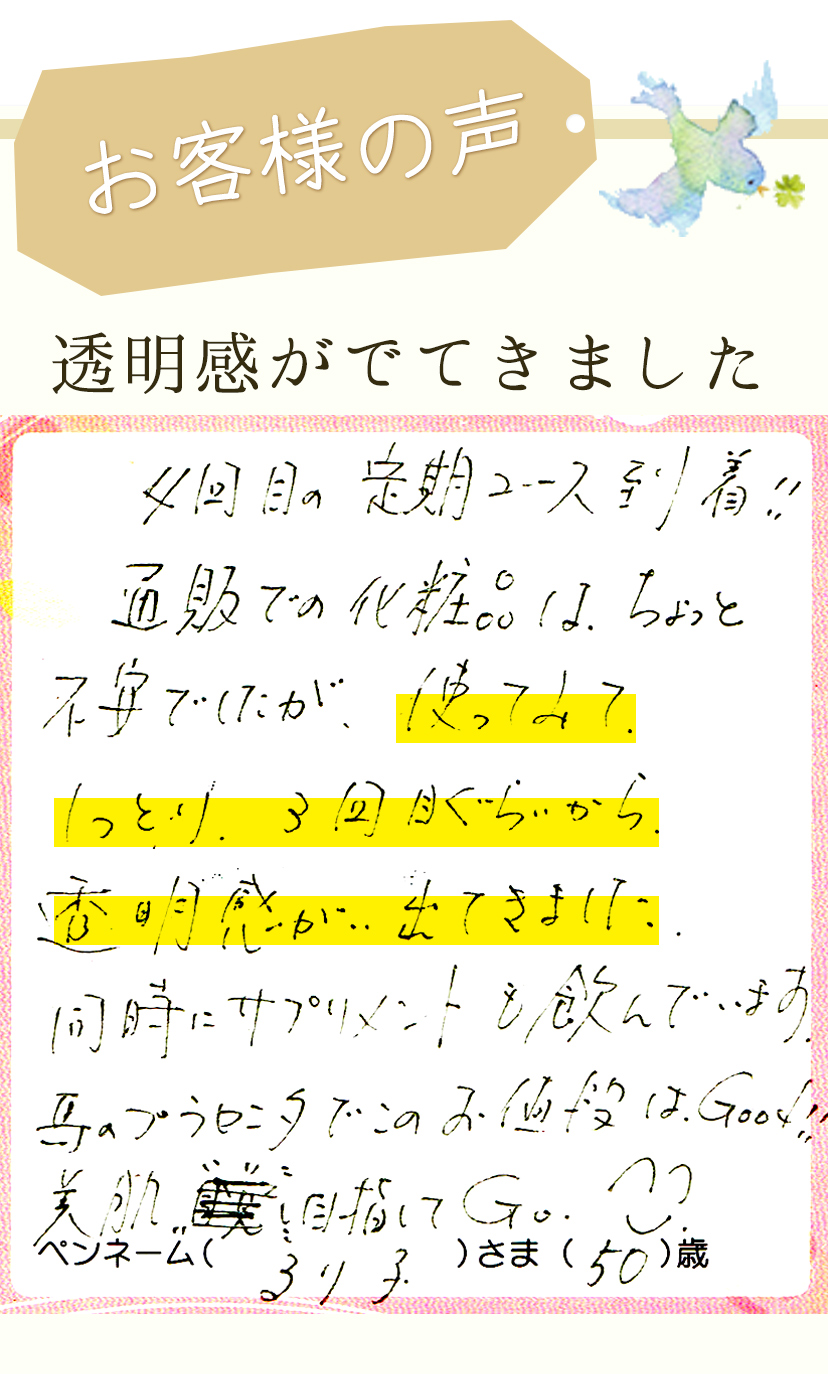 お客様の声
透明感がでてきました
4回目の定期コース到着!!
通販での化粧品は、ちょっと
不安でしたが、使ってみて、
しっとり、3回目ぐらいから、
透明感が出てきました。
同時にサプリメントも飲んでいます。
馬のプラセンタでこのお値段は、Good!!
美肌 目指してGo.
ペンネーム( まり子 )さま(50)歳